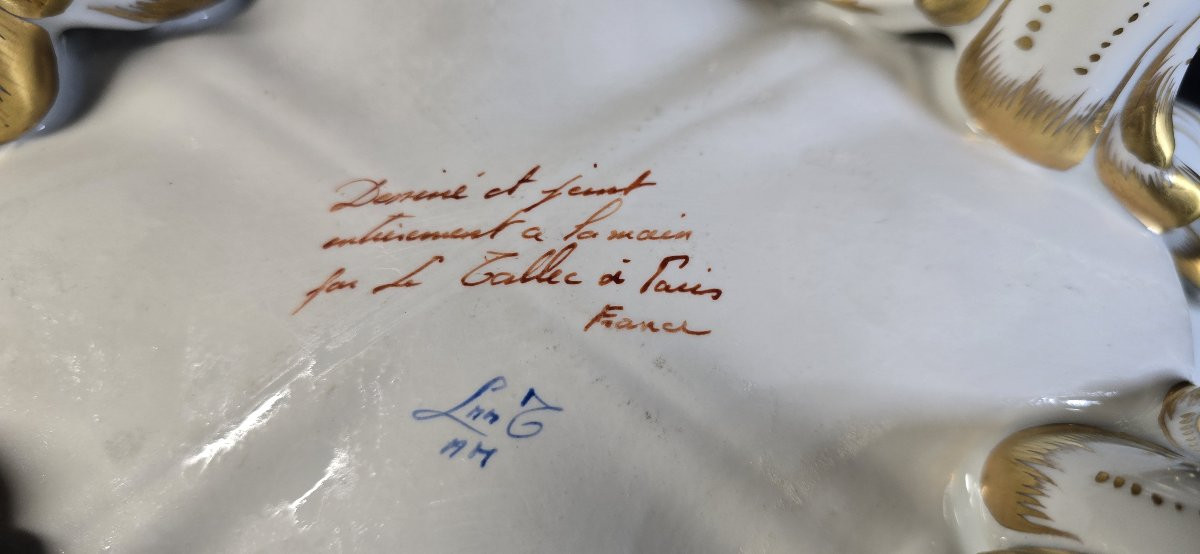 Dessiné et peint
entièrement a la main
par Le Tallec à Paris
France
L nn T
AM